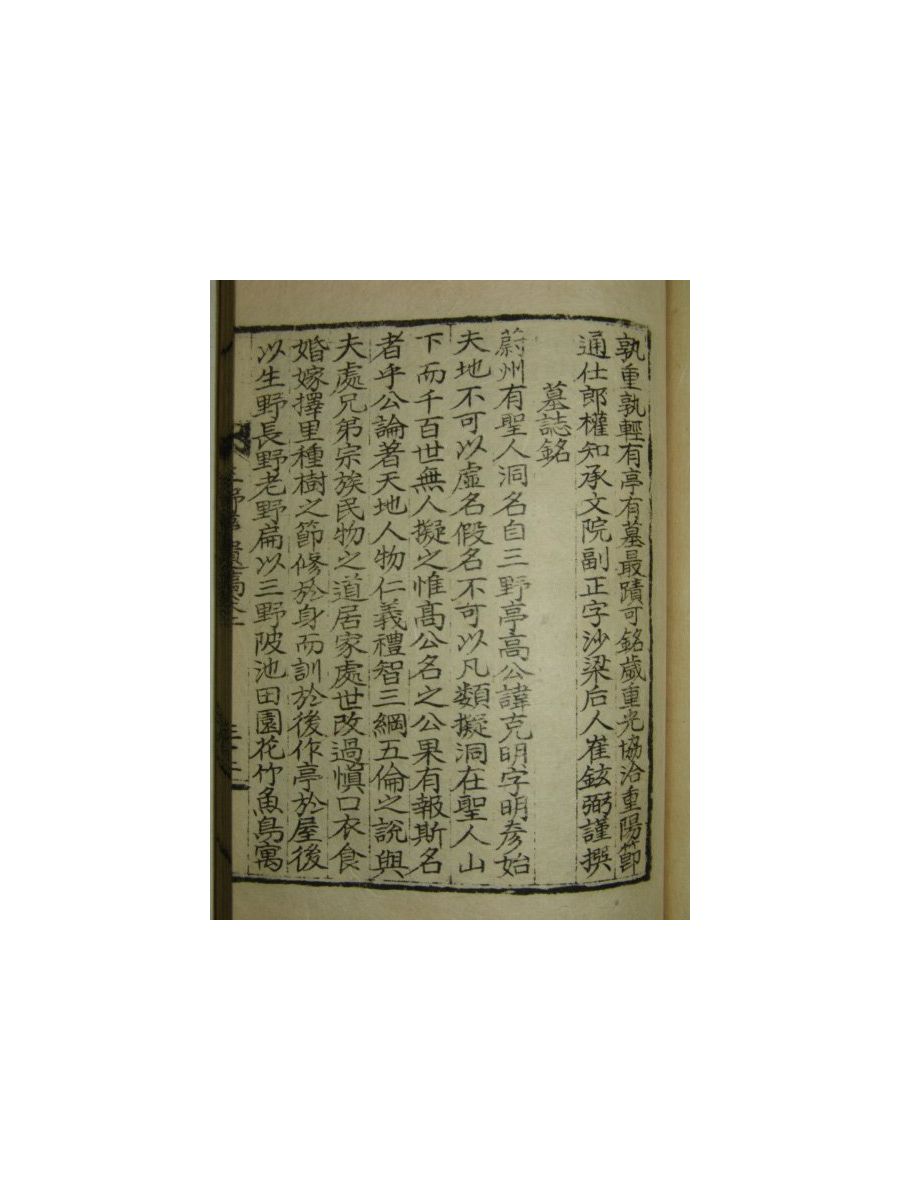 孰重孰輕有亭有墓最蹟可銘歲重光協洽重陽節
通仕郎權知承文院副正字沙梁后人崔鉉弼謹撰
墓誌銘
蔚州有聖人洞名自三野亭高公諱克明字明彥始
夫地不可以虛名假名不可以凡類擬洞在聖人山
下而千百世無人擬之惟高公名之公果有報斯名
者乎公論著天地人物仁義禮智三綱五倫之說與
夫處兄弟宗族民物之道居家處世改過愼口衣食
婚嫁擇里種樹之節修於身而訓於後作亭於屋後
以生野長野老野扁以三野陂池田園花竹魚鳥寓
三野亭遺稿卷二